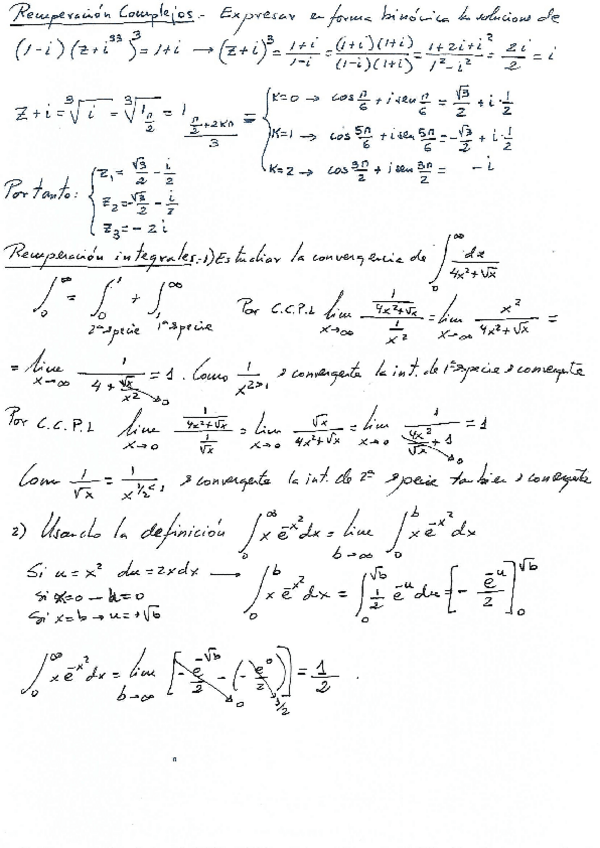 Recuperación Complejos.- Expresar en forma binómica las soluciones de
(1-i)(z+i^33)^3 = 1+i → (z+i)^3 = (1+i)/(1-i) = (1+i)(1+i)/(1-i)(1+i) = (1+2i+i^2)/(1^2-i^2) = 2i/2 = i
z+i = ∛i = ∛(1_(π/2)) = 1_((π/2+2kπ)/3) =
K=0 → cos π/6 + i sen π/6 = √3/2 + i·1/2
K=1 → cos 5π/6 + i sen 5π/6 = -√3/2 + i·1/2
K=2 → cos 3π/2 + i sen 3π/2 = -i
Por tanto:
z₁ = √3/2 - i/2
z₂ = -√3/2 - i/2
z₃ = -2i
Recuperación integrales.- 1) Estudiar la convergencia de ∫_0^∞ dx/(4x^2+√x)
∫_0^∞ = ∫_0^1 + ∫_1^∞ Por C.C.P.L lim_(x→∞) (1/(4x^2+√x))/(1/x^2) = lim_(x→∞) x^2/(4x^2+√x) =
2ª especie 1ª especie
= lim_(x→∞) 1/(4+√x/x^2) = 1. Como 1/x^(2>1) es convergente la int. de 1ª especie es convergente
→0
Por C.C.P.L lim_(x→0) (1/(4x^2+√x))/(1/√x) = lim_(x→0) √x/(4x^2+√x) = lim_(x→0) 1/(4x^2/√x+1) = 1
→0
Como 1/√x = 1/x^(1/2<1) es convergente la int. de 2ª especie también es convergente
2) Usando la definición ∫_0^∞ x e^(-x^2) dx = lim_(b→∞) ∫_0^b x e^(-x^2) dx
Si u = x^2 du = 2xdx → ∫_0^b x e^(-x^2) dx = ∫_0^√b 1/2 e^(-u) du = [-e^(-u)/2]_0^√b
Si x=0 → u=0
Si x=b → u=+√b
∫_0^∞ x e^(-x^2) dx = lim_(b→∞) [-e^(-√b)/2 - (-e^0/2)] = 1/2.
→0